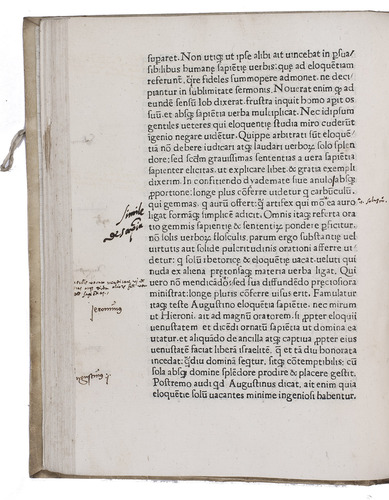 suparet. Non utiq; ut ipse alibi ait uincebat in psua
sibilibus humanę sapiētię uerbis: quę ad eloquētiam
referunt, q̄re fideles summopere admonet, ne deci
piantur in sublimitate sermonis. Nouerat enim q̄ ad
eundē sensū Iob dixerat. frustra inquit homo apit os
suū. et absq; sapiētia uerba multiplicat. Nec id ipsum
gentiles ueteres qui eloquentię studia miro
ingenio negare uidēt. Quippe arbitrati sūt eloquē
tiā nō debere iudicari atq; laudari uerboꝝ solo splen
dore: sed scd̄m grauissimas sententias a uera sapiētia
sapienter elicitas. ut explicare libet, & gratia exempli
dixerim. In conficiendo dyademate siue anulo: absq;
pportione: longe plus cōferre uidetur q̄ carbūculū.
qui gemmas. q̄ aurū offert: q̄ artifex qui auro
ligat formāq; simplicē adicit. Omnis itaq; referta ora
tio gemmis sapientię & sententiaꝝ pondere pficitur.
nō solis uerboꝝ flosculis, parum ergo substantię uel
uirtutis aut solidę pulcritudinis orationi afferre ui
detur: q̄ solū rhetoricę & eloquētię uacat. ueluti qui
nuda ex aliena materia uerba ligat. Qui
uero nō sed sua diffundēdo preciosiora
ministrat: longe pluris cōferre uisus erit. Famulatur
itaq; teste Augustino eloquētia sapiētię. nec mirum
ut Hieroni. ait ad magnū oratorem. si ppter eloquii
uenustatem et dicēdi ornatū sapiētia ut domina ea
utatur. et aliquādo de ancilla atq; captiua ppter eius
uenustatē faciat liberā israelitē. q̄ et tā diu honorata
incedat: q̄diu dominā seqtur. sitq; cōtemptibilis: cū
sola absq; dominę splēdore prodire & placere gestit.
Postremo audi qd̄ Augustinus dicat. ait enim quia
eloquētię solū uacantes minime ingeniosi habentur.
simile
de sapīa
Jeronimus